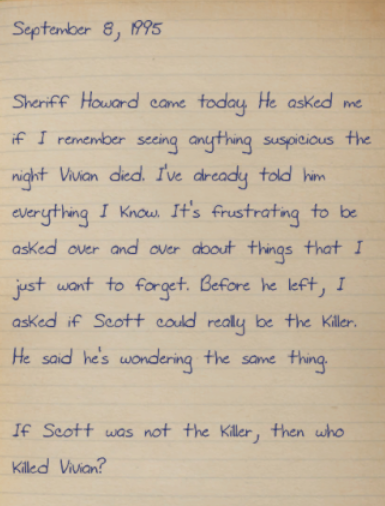 September 8, 1995
Sheriff Howard came today. He asked me
if I remember seeing anything suspicious the
night Vivian died. I've already told him
everything I know. It's frustrating to be
asked over and over about things that I
just want to forget. Before he left, I
asked if Scott could really be the killer.
He said he's wondering the same thing.
If Scott was not the killer, then who
killed Vivian?